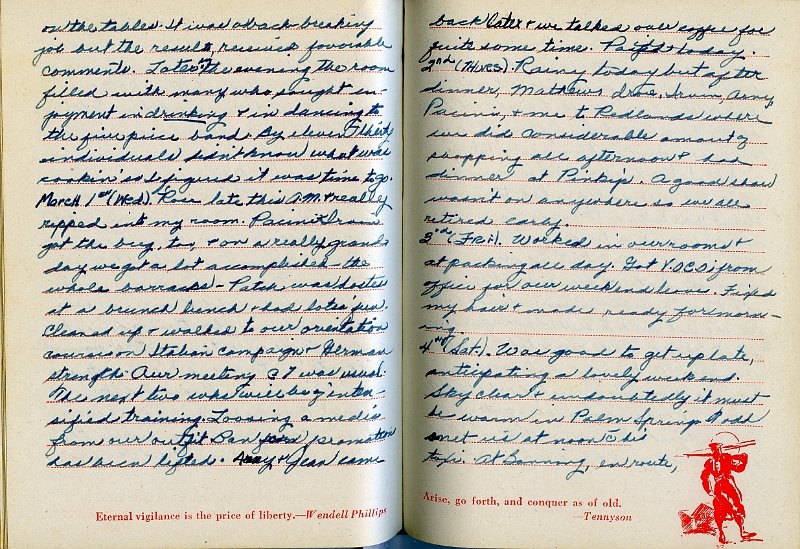 on the tables. It was a back breaking
job but the results receives favorable
comments. Later in the evening the room
filled with many who sought en-
joyment in drinking + in dancing to
the five piece band. By eleven thirty
individuals didn't know what was
cookin' so I figured it was time to go.
March 1st (Wed). Rose late this A.M. + really
ripped into my room. Pacini + Irvin
got the bug, too, + on a really grand
day we got a lot accomplished - the
whole barracks - Patch was hostess
at a brunch bench + had lots' fun.
Cleaned up + walked to our orientation
course on Italian campaign + German
strength. Our meeting @ 7 was usual.
The next two wks will be of inten-
sified training. Loosing a medic
from our outfit. Ban promotion
has been lifted. Amy + Jean came
Eternal vigilance is the price of liberty.—Wendell Phillips
back later + we talked over coffee for
quite some time. Payd today.
2nd (THURS). Rainy today but after
dinner, Mathews drove, Irvin, Amy,
Pacini, + me to Redlands where
we did considerable amount of
shopping all afternoon + had
dinner at Pinkip. A good show
wasn't on anywhere so we all
retired early.
3rd (FRI). Worked in our rooms +
at packing all day. Got V.O.C.O's from
office for our weekend leave. Fixed
my hair + made ready for morn-
ing.
4th (Sat). Was good to get up late,
anticipating a lovely weekend.
Sky clear + undoubtedly it must
be warm in Palm Springs.
met us at noon @ his
taxi. At Banning, en route,
Arise, go forth, and conquer as of old.
—Tennyson